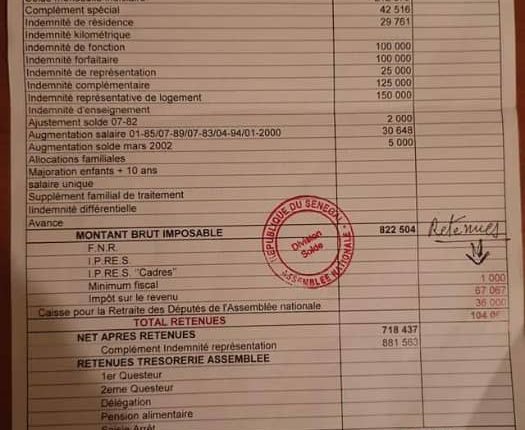 Complément spécial 42 516
Indemnité de résidence 29 761
Indemnité kilométrique
indemnité de fonction 100 000
Indemnité forfaitaire 100 000
Indemnité de représentation 25 000
Indemnité complémentaire 125 000
Indemnité représentative de logement 150 000
Indemnité d'enseignement
Ajustement solde 07-82 2 000
Augmentation salaire 01-85/07-89/07-83/04-94/01-2000 30 648
Augmentation solde mars 2002 5 000
Allocations familiales
Majoration enfants + 10 ans
salaire unique
Supplément familial de traitement
Iindemnité différentielle
Avance
MONTANT BRUT IMPOSABLE 822 504 Retenues
REPUBLIQUE DU SENEGAL
Division
Solde
ASSEMBLEE NATIONALE
F.N.R.
I.P.RES.
I.P.RES. "Cadres"
Minimum fiscal 1 000
Impôt sur le revenu 67 067
Caisse pour la Retraite des Députés de l'Assemblée nationale 36 000
TOTAL RETENUES
NET APRES RETENUES 718 437
Complément Indemnité représentation 881 563
RETENUES TRESORERIE ASSEMBLEE
1er Questeur
2eme Questeur
Délégation
Pension alimentaire